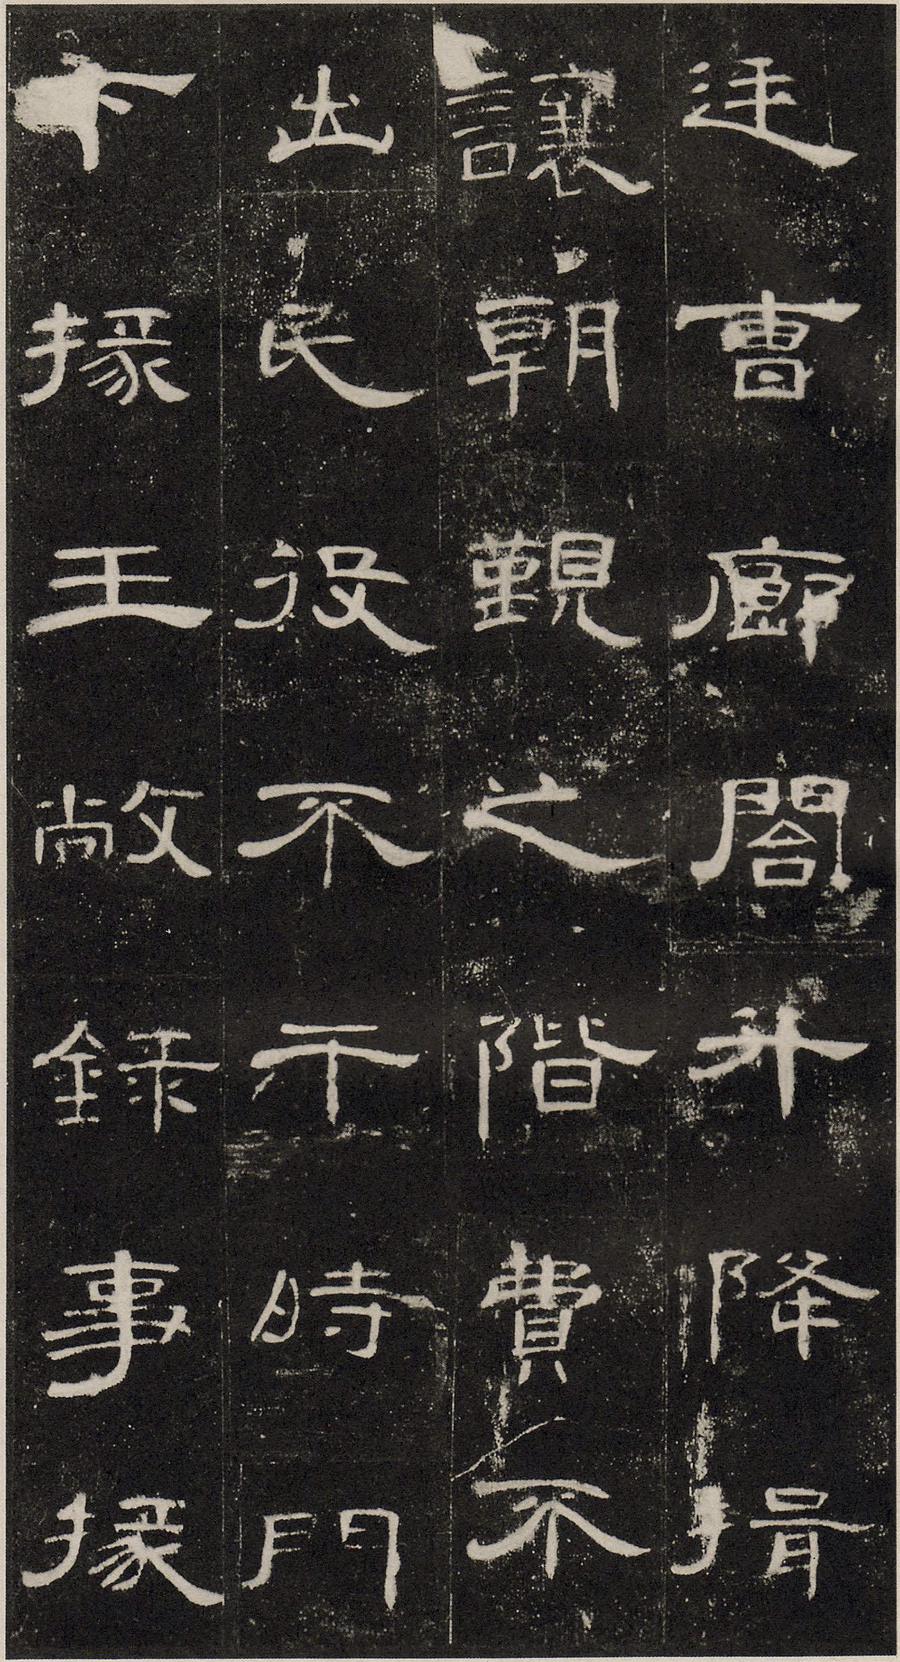 廷曹廊閤升降揖
讓朝覲之階費不
出民役不干時門
下掾王敞録事掾